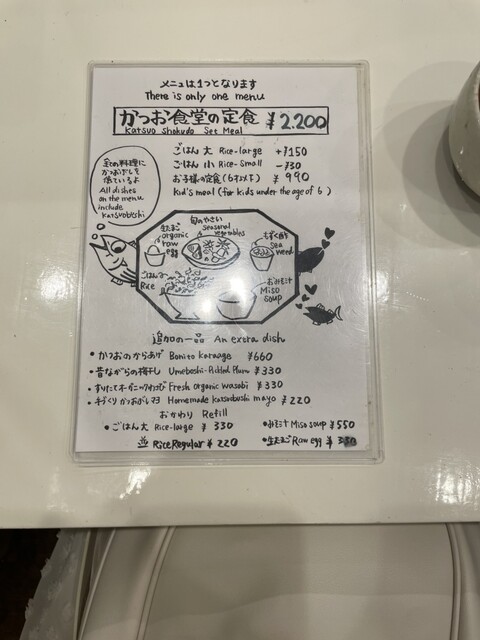 メニューは1つとなります
There is only one menu
かつお食堂の定食 ¥2.200
Katsuo Shokudo Set Meal
ごはん 大 Rice-large +¥150
ごはん 小 Rice-small -¥30
お子様の定食(6才以下) ¥990
Kid's meal (for kids under the age of 6)
全の料理に
かつおだしを
使ているよ
All dishes
on the menu
include
Katsuobushi
旬のやさい
seasonal
vegetables
生たまご
organic
raw
egg
もずく酢
Sea
weed
ごはん
Rice
おみそ汁
Miso
soup
追加の一品 An extra dish
・かつおのからあげ Bonito Karaage ¥660
・昔ながらの梅干し Umeboshi-Pickled Plum ¥330
・すりたてオーガニックわさび Fresh organic wasabi ¥330
・手づくりかつおぶしマヨ Homemade katsuobushi mayo ¥220
おかわり Refill
・ごはん 大 Rice-large ¥330
・みそ汁 Miso soup ¥550
並 Rice Regular ¥220
・生たまご Raw egg